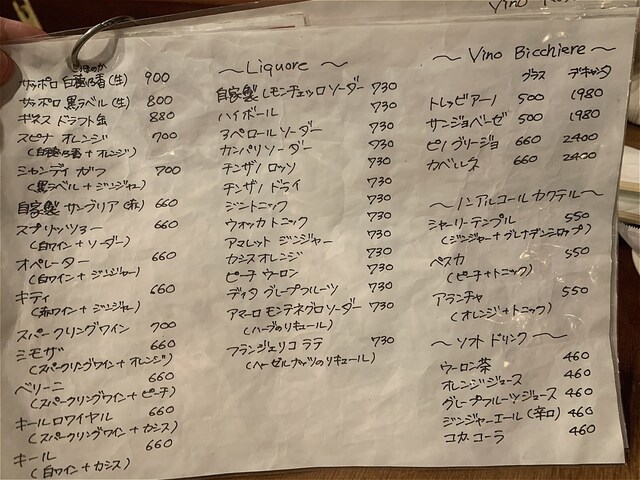 Vino
しほのか
サッポロ 白穂乃香(生) 900
サッポロ 黒ラベル(生) 800
ギネス ドラフト缶 880
スピナ オレンジ 700
(白穂乃香+オレンジ)
シャンディ ガフ 700
(黒ラベル+ジンジャー)
自家製 サングリア(赤) 660
スプリッツァー 660
(白ワイン+ソーダー)
オペレーター 660
(白ワイン+ジンジャー)
キティ 660
(赤ワイン+ジンジャー)
スパークリングワイン 700
ミモザ 660
(スパークリングワイン+オレンジ)
ベリーニ 660
(スパークリングワイン+ピーチ)
キールロワイヤル 660
(スパークリングワイン+カシス)
キール 660
(白ワイン+カシス)
〜Liquore〜
自家製 レモンチェッロソーダー 730
ハイボール 730
アペロールソーダー 730
カンパリソーダー 730
チンザノ ロッソ 730
チンザノ ドライ 730
ジントニック 730
ウォッカトニック 730
アマレット ジンジャー 730
カシスオレンジ 730
ピーチ ウーロン 730
ディタ グレープフルーツ 730
アマーロ モンテネグロ ソーダー 730
(ハーブのリキュール)
フランジェリコ ラテ 730
(ヘーゼルナッツのリキュール)
〜Vino Bicchiere〜
グラス デキャンタ
トレッビアーノ 500 1980
サンジョベーゼ 500 1980
ピノ グリージョ 660 2400
カベルネ 660 2400
〜ノンアルコール カクテル〜
シャーリーテンプル 550
(ジンジャー+グレナデンシロップ)
ペスカ 550
(ピーチ+トニック)
アランチャ 550
(オレンジ+トニック)
〜ソフト ドリンク〜
ウーロン茶 460
オレンジジュース 460
グレープフルーツジュース 460
ジンジャーエール(辛口) 460
コカ・コーラ 460